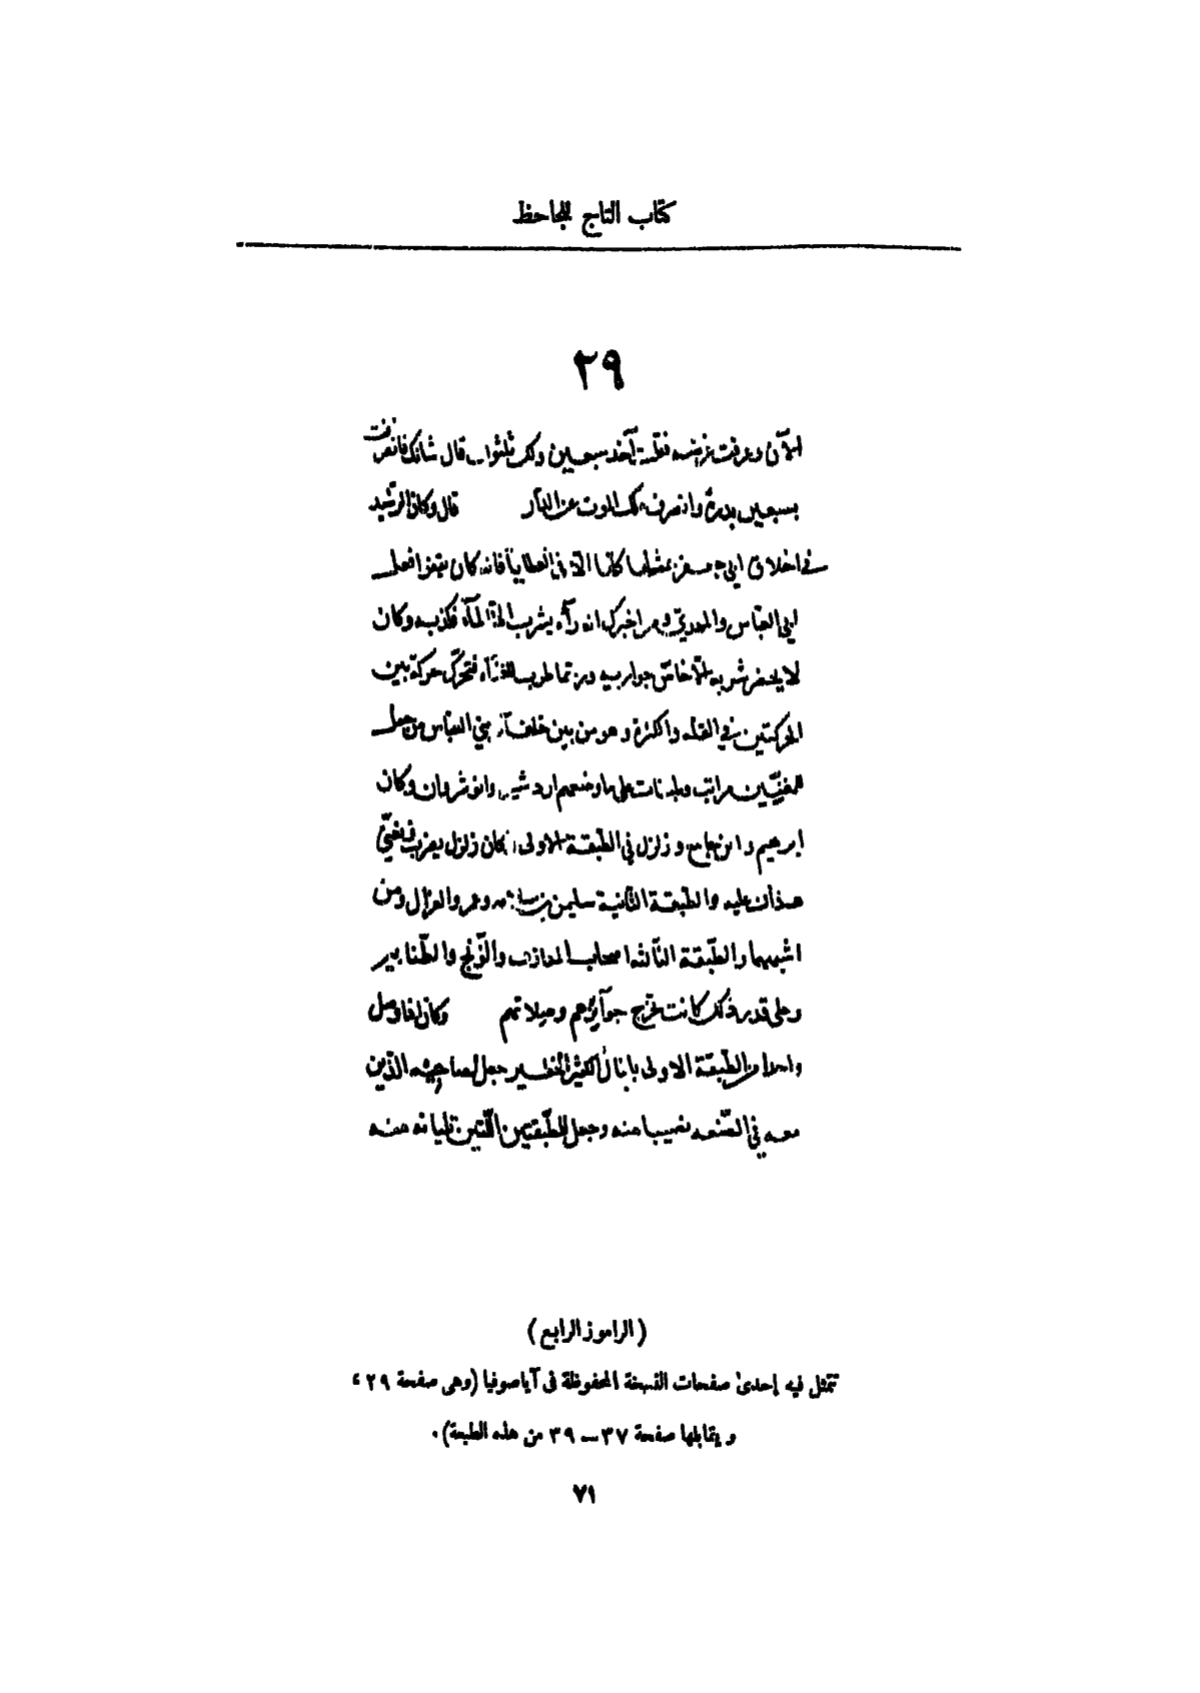 كتاب التاج للجاحظ
٢٩
الآن وعرفت غرضه فقلت آخذ سبعين ولك ثلثون قال شانك فانصرفت
بسبعين بدرة وانصرف ملك الموت عن الدار قال وكان الرشيد
في اخلاق ابي جعفر يمتثلها كلها الا في العطايا فانه كان يقفوا فعل
ابي العباس والمهدي ومن اخبرك انه رآه يشرب الا المآء فكذبه وكان
لا يحضر شربه الا خاص جواريه وربما طرب للغنآء فتحرك حركة بين
الحركتين في القله والكثرة وهو من بين خلفآء بني العباس من جعل
للمغنيين مراتب وطبقات على ما وضعهم اردشير وانوشروان وكان
ابرهيم وابن جامع وزلزل في الطبقة الاولى وكان زلزل يضرب ويغني
هذان عليه والطبقة الثانية سليمن بن سلام وعمرو الغزال ومن
اشبههما والطبقة الثالثه اصحاب المعازف والونج والطنابير
وعلى قدر ذلك كانت تخرج جوآئزهم وصلاتهم وكان اذا وصل
واحدا من الطبقة الاولى بالمال الكثير الخطير جعل لصاحبيه الذين
معه في الصنعه نصيبا منه وجعل للطبقتين اللتين تليانه منه
(الراموز الرابع)
تتمثل فيه إحدى صفحات النسخة المحفوظة فى آياصوفيا (وهى صفحة ٢٩ ،
ويقابلها صفحة ٣٧ — ٣٩ من هذه الطبعة).
٧١